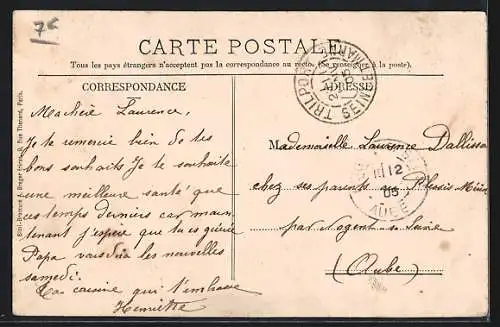 7c
CARTE POSTALE
Tous les pays étrangers n'acceptent pas la correspondance au recto, (se renseigner à la poste).
CORRESPONDANCE
Ma chère Laurence,
Je te remercie bien de tes
bons souhaits Je te souhaite
une meilleure santé que
ces temps derniers car main
tenant j'espère que tu es guérie
Papa les nouvelles
samedi.
Ta cousine qui t'embrasse
Henriette
ADRESSE
TRILPORT
SEINE-ET-MARNE
Mademoiselle Laurence Dallissa
chez ses parents Plessis
par Nogent s. Seine
(Aube)
12
05
AUBE